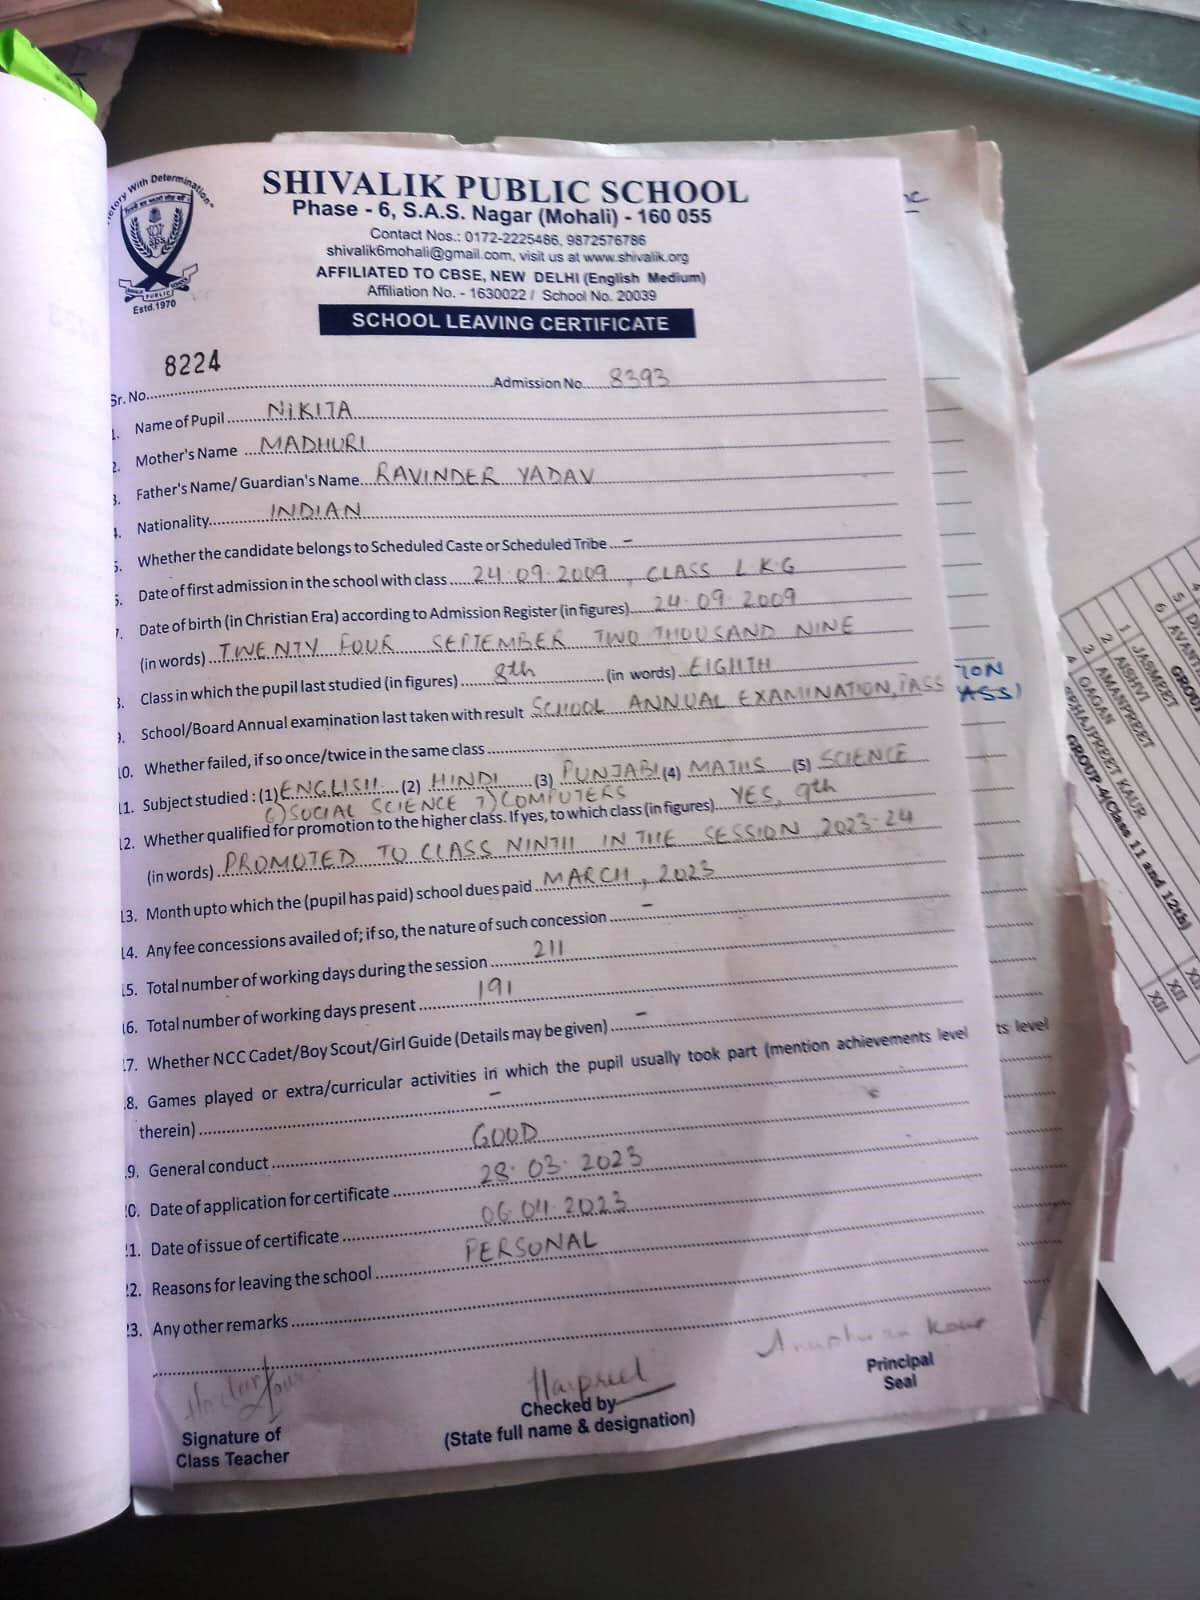 "Victory With Determination"
SPS
SHIVALIK PUBLIC SCHOOL
Estd.1970
SHIVALIK PUBLIC SCHOOL
Phase - 6, S.A.S. Nagar (Mohali) - 160 055
Contact Nos.: 0172-2225486, 9872576786
shivalik6mohali@gmail.com, visit us at www.shivalik.org
AFFILIATED TO CBSE, NEW DELHI (English Medium)
Affiliation No. - 1630022 / School No. 20039
SCHOOL LEAVING CERTIFICATE
Sr. No. 8224 Admission No. 8393
1. Name of Pupil NIKITA
2. Mother's Name MADHURI
3. Father's Name/ Guardian's Name RAVINDER YADAV
4. Nationality INDIAN
5. Whether the candidate belongs to Scheduled Caste or Scheduled Tribe -
6. Date of first admission in the school with class 24.09.2009, CLASS L.K.G
7. Date of birth (in Christian Era) according to Admission Register (in figures) 24.09.2009
(in words) TWENTY FOUR SEPTEMBER TWO THOUSAND NINE
8. Class in which the pupil last studied (in figures) 8th (in words) EIGHTH
9. School/Board Annual examination last taken with result SCHOOL ANNUAL EXAMINATION, PASS
10. Whether failed, if so once/twice in the same class
11. Subject studied : (1) ENGLISH (2) HINDI (3) PUNJABI (4) MATHS (5) SCIENCE
6) SOCIAL SCIENCE 7) COMPUTERS
12. Whether qualified for promotion to the higher class. If yes, to which class (in figures) YES, 9th
(in words) PROMOTED TO CLASS NINTH IN THE SESSION 2023-24
13. Month upto which the (pupil has paid) school dues paid MARCH, 2023
14. Any fee concessions availed of; if so, the nature of such concession -
15. Total number of working days during the session 211
16. Total number of working days present 191
17. Whether NCC Cadet/Boy Scout/Girl Guide (Details may be given) -
18. Games played or extra/curricular activities in which the pupil usually took part (mention achievements level
therein) -
19. General conduct GOOD
20. Date of application for certificate 28.03.2023
21. Date of issue of certificate 06.04.2023
22. Reasons for leaving the school PERSONAL
23. Any other remarks
Harpreet
Signature of
Class Teacher
Checked by
(State full name & designation)
Principal
Seal
TION
ASS)
ts level
1 JASMEET
2 AISHVI
3 AMANPREET
4 GAGAN
SEHAJPREET KAUR
GROUP-4(Class 11 and 12th)
XII
XII